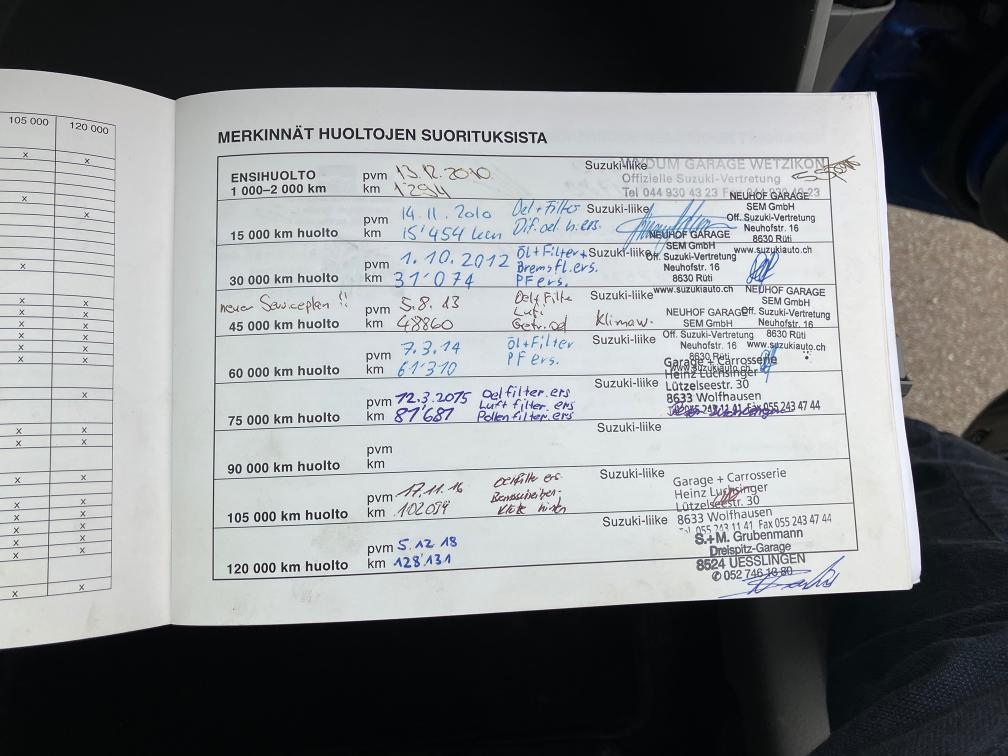 105 000 120 000
MERKINNÄT HUOLTOJEN SUORITUKSISTA
ENSIHUOLTO
1 000–2 000 km
pvm 13.12.2010
km 1294
Suzuki-liike
WYDUM GARAGE WETZIKON
Offizielle Suzuki-Vertretung
Tel 044 930 43 23
15 000 km huolto
pvm 14.11.2010 Oel+Filter
km 15'454 km
Suzuki-liike
NEUHOF GARAGE
SEM GmbH
Off. Suzuki-Vertretung
Neuhofstr. 16
8630 Rüti
www.suzukiauto.ch
30 000 km huolto
pvm 1.10.2012 Öl+Filter+
Bremsfl.ers.
km 31'074 PF ers.
Suzuki-liike
NEUHOF GARAGE
SEM GmbH
Off. Suzuki-Vertretung
Neuhofstr. 16
8630 Rüti
www.suzukiauto.ch
neuer Serviceplan !!
45 000 km huolto
pvm 5.8.13
km 48860
Klimaw.
Suzuki-liike
NEUHOF GARAGE
SEM GmbH
Off. Suzuki-Vertretung
Neuhofstr. 16
8630 Rüti
www.suzukiauto.ch
60 000 km huolto
pvm 7.3.14 Öl+Filter
km 61'310 PF ers.
Suzuki-liike
NEUHOF GARAGE
SEM GmbH
Off. Suzuki-Vertretung
Neuhofstr. 16
8630 Rüti
www.suzukiauto.ch
75 000 km huolto
pvm 12.3.2015 Oelfilter.ers
Luftfilter.ers
km 81'681 Pollenfilter.ers
Suzuki-liike
Garage + Carrosserie
Heinz Luchsinger
Lützelseestr. 30
8633 Wolfhausen
055 243 11 41 Fax 055 243 47 44
90 000 km huolto
pvm
km
Suzuki-liike
105 000 km huolto
pvm 17.11.16
km 102094
Suzuki-liike
Garage + Carrosserie
Heinz Luchsinger
Lützelseestr. 30
8633 Wolfhausen
Tel. 055 243 11 41 Fax 055 243 47 44
120 000 km huolto
pvm 5.12.18
km 128'131
Suzuki-liike
S.+M. Grubenmann
Dreispitz-Garage
8524 UESSLINGEN
✆ 052 746 18 80